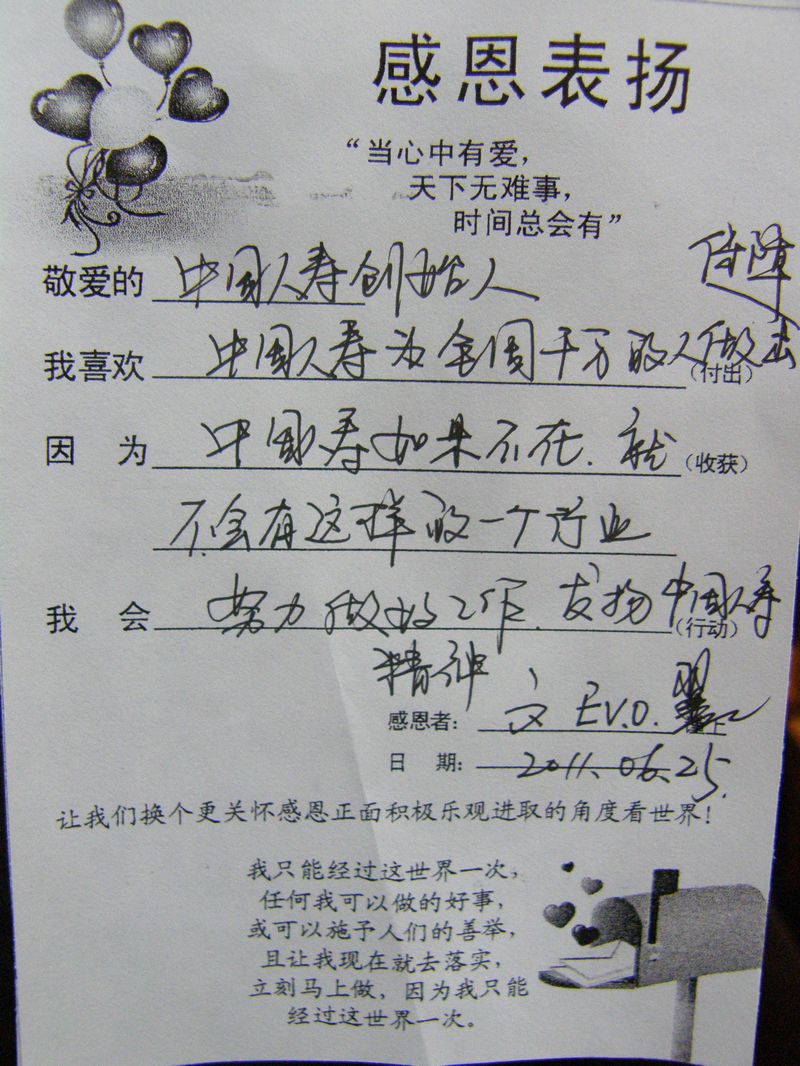 感恩表扬
“当心中有爱，
天下无难事，
时间总会有”
敬爱的 中国人寿创始人
我喜欢 中国人寿为全国千万的人做出 保障
(付出)
因 为 中国寿如果不在.就 (收获)
不会有这样的一个行业
我 会 努力做好工作.发扬中国人寿
(行动)
精神
感恩者： EV.O. 上
日 期： 2011.06.25.
让我们换个更关怀感恩正面积极乐观进取的角度看世界！
我只能经过这世界一次，
任何我可以做的好事，
或可以施予人们的善举，
且让我现在就去落实，
立刻马上做，因为我只能
经过这世界一次。